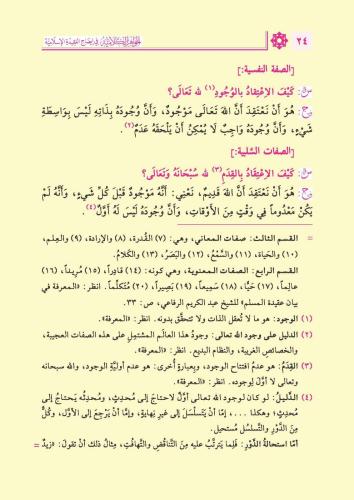 الجواهر الكلامية في إيضاح العقيدة الإسلامية
٢٤
[الصفة النفسية:]
س: كَيْفَ الِاعْتِقَادُ بِالوُجُودِ(١) لله تَعَالَى؟
ج: هُوَ أَنْ نَعْتَقِدَ أَنَّ اللهَ تَعَالَى مَوْجُودٌ، وَأَنَّ وُجُودَهُ بِذَاتِهِ لَيْسَ بِوَاسِطَةِ
شَيْءٍ، وَأَنَّ وُجُودَهُ وَاجِبٌ لَا يُمْكِنُ أَنْ يَلْحَقَهُ عَدَمٌ(٢).
[الصفات السَّلبية:]
س: كَيْفَ الِاعْتِقَادُ بِالقِدَمِ(٣) لله سُبْحَانَهُ وَتَعَالَى؟
ج: هُوَ أَنْ نَعْتَقِدَ أَنَّ اللهَ قَدِيمٌ، نَعْنِي: أَنَّهُ مَوْجُودٌ قَبْلَ كُلِّ شَيْءٍ، وَأَنَّهُ لَمْ
يَكُنْ مَعْدُوماً فِي وَقْتٍ مِنَ الأَوْقَاتِ، وَأَنَّ وُجُودَهُ لَيْسَ لَهُ أَوَّلٌ(٤).
= القسم الثالث: صفات المعاني، وهي: (٧) القُدرة، (٨) والإرادة، (٩) والعِلم،
(١٠) والحَياة، (١١) والسَّمْعُ، (١٢) والبَصَرُ، (١٣) والكَلَامُ.
القسم الرابع: الصفات المعنوية، وهي كونه: (١٤) قادراً، (١٥) مُريداً، (١٦)
عالِماً، (١٧) حَيًّا، (١٨) سَميعاً، (١٩) بَصيراً، (٢٠) مُتَكلِّماً. انظر: «المعرفة في
بيان عقيدة المسلم» للشيخ عبد الكريم الرفاعي، ص: ٣٣.
(١) الوجود: هو ما لا تُعقل الذات ولا تتحقَّق بدونه. انظر: «المعرفة».
(٢) الدليل على وجود الله تعالى: وجودُ هذا العالَم المشتمِلِ على هذه الصفات العجيبة،
والخصائص الغريبة، والنظام البديع. انظر: «المعرفة».
(٣) القِدَمُ: هو عدم افتتاح الوجود، وبعبارةٍ أخرى: هو عدم أوليَّة الوجود، والله سبحانه
وتعالى لا أوَّلَ لوجوده. انظر: «المعرفة».
(٤) الدَّلِيلُ: لو كان لوجود الله تعالى أوَّلٌ لاحتاج إلى مُحدِثٍ، ومُحدِثُه يَحتاجُ إلى
مُحدِثٍ؛ وهكذا ...، إمَّا أنْ يَتَسلْسَلَ إلى غيرِ نِهايةٍ، وإمَّا أنْ يَرْجِعَ إلى الأوَّل، وكُلٌّ
مِنَ الدَّوْرِ والتَّسلسُل مستحيل.
أمَّا استحالَةُ الدَّوْرِ: فَلِما يترتَّبُ عليه مِنَ التَّنَاقُضِ والتَّهافُتِ، مِثالُ ذلك أنْ تقولَ: «زيدٌ =